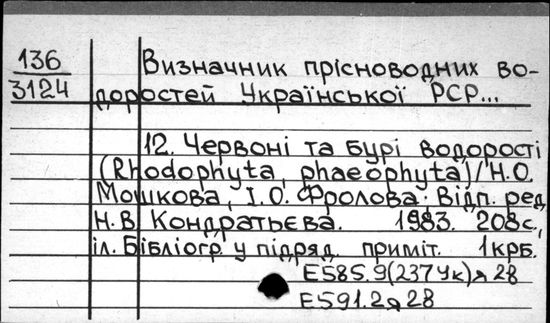 136
3124
Визначник прісноводних во-
доростей Української РСР...
12. Червоні та бурі водорості
(Rhodophyta, phaeophyta)/Н.О.
Мошкова, І.О. Фролова. Відп. ред.
Н.В. Кондратьєва. 1983. 208с.,
іл. Бібліогр. у підряд. приміт. 1крб.
Е585.9(237Ук)я28
Е591.2я28